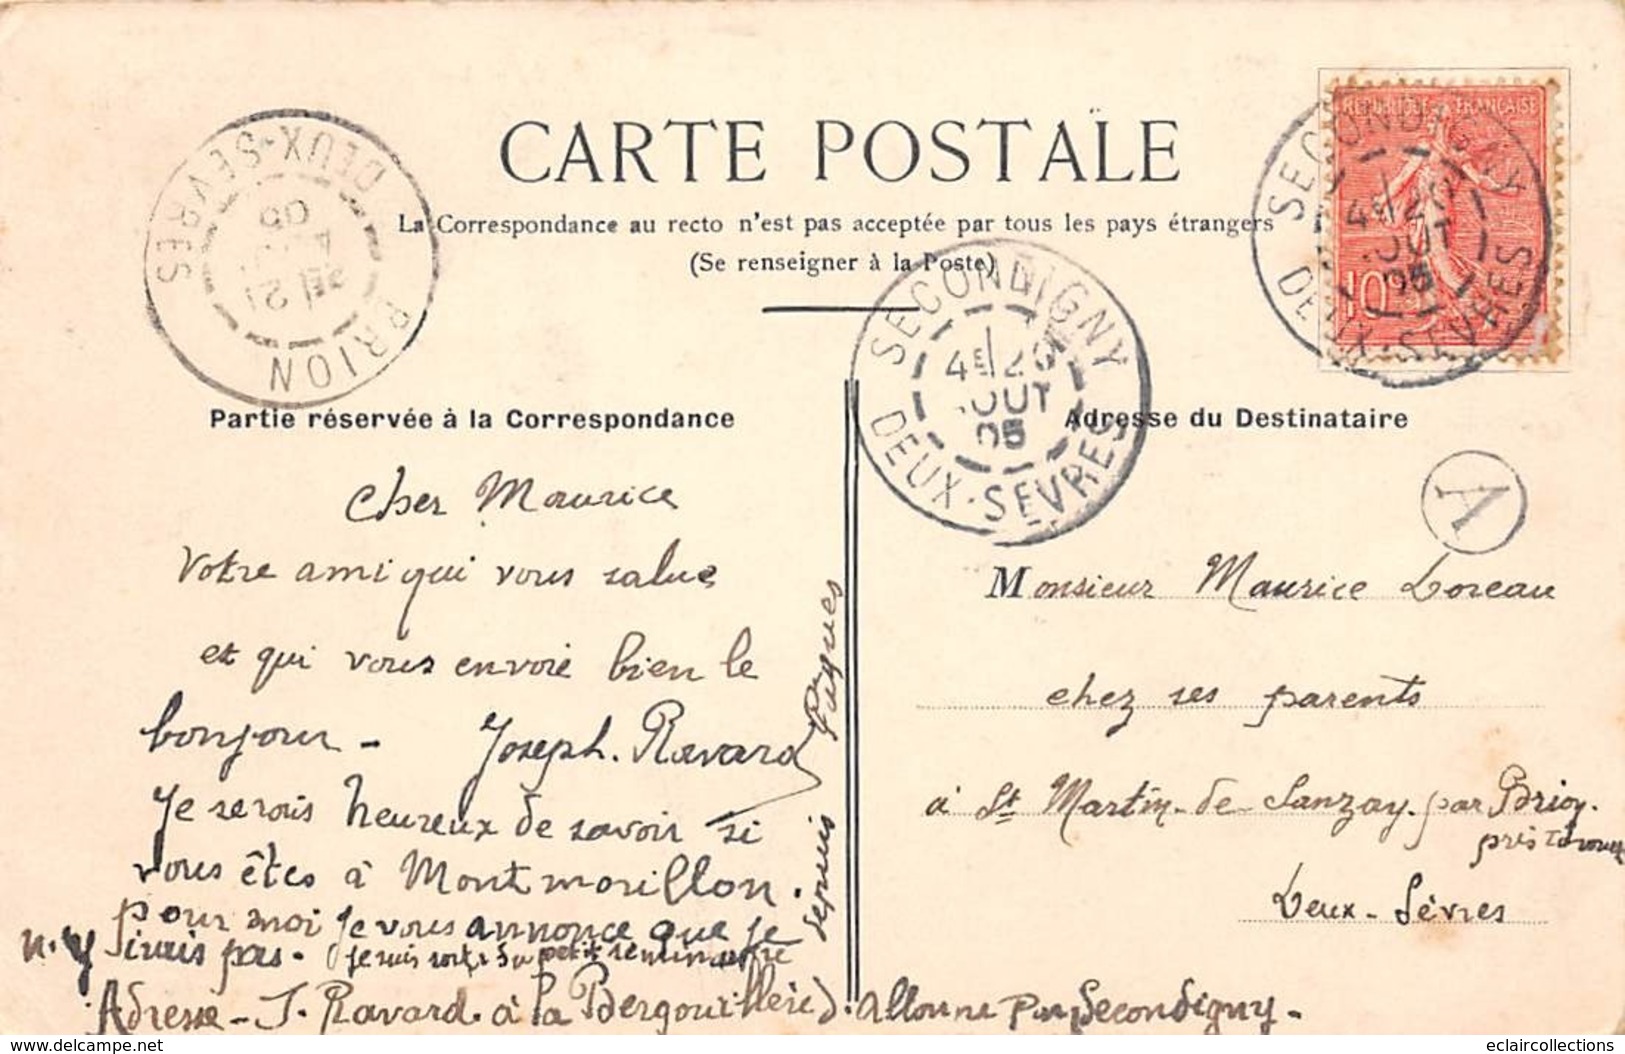 CARTE POSTALE
La Correspondance au recto n'est pas acceptée par tous les pays étrangers
(Se renseigner à la Poste)
DEUX-SEVRES
BRION
21
REPUBLIQUE FRANÇAISE
10
SECONDIGNY
4E 20
AOUT
05
DEUX-SEVRES
SECONDIGNY
4E 20
AOUT
05
DEUX-SEVRES
Partie réservée à la Correspondance
Adresse du Destinataire
A
Cher Maurice
Votre ami qui vous salue
et qui vous envoie bien le
bonjour - Joseph. Ravard
Je serais heureux de savoir si
vous êtes à Montmorillon.
pour moi je vous annonce que je
n'y irais pas. je suis sorti du petit séminaire
depuis Pâques
Adresse - J. Ravard. à la Bergouillère d'Allonne par Secondigny -
Monsieur Maurice Loreau
chez ses parents
à St Martin-de-Sanzay. par Brion.
près Thouars
Deux-Sèvres
delcampe.net
eclaircollections